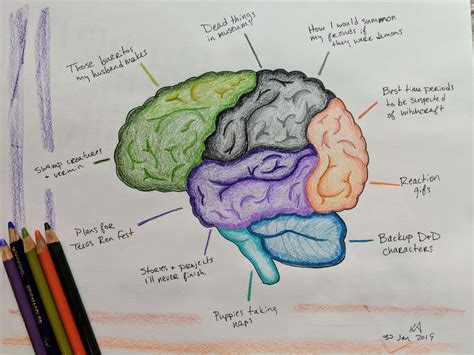 Dead things
in museums
How I would summon
my friends if
they were demons
Those burritos
my husband makes
Best time periods
to be suspected
of witchcraft
Swamp creatures
+ vermin
Reaction
gifs
Plans for
Texas Ren Fest
Backup D+D
characters
Stories + projects
I'll never finish
Puppies taking
naps
30 Jan 2019